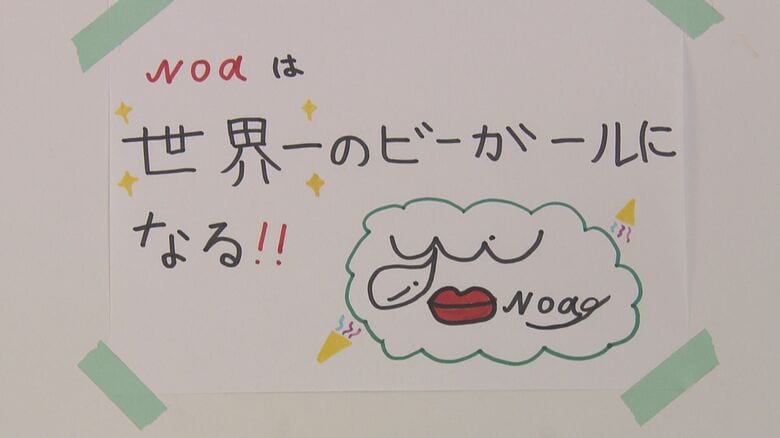 Noa は
世界一のビーガールに
なる!!
yui
Noa